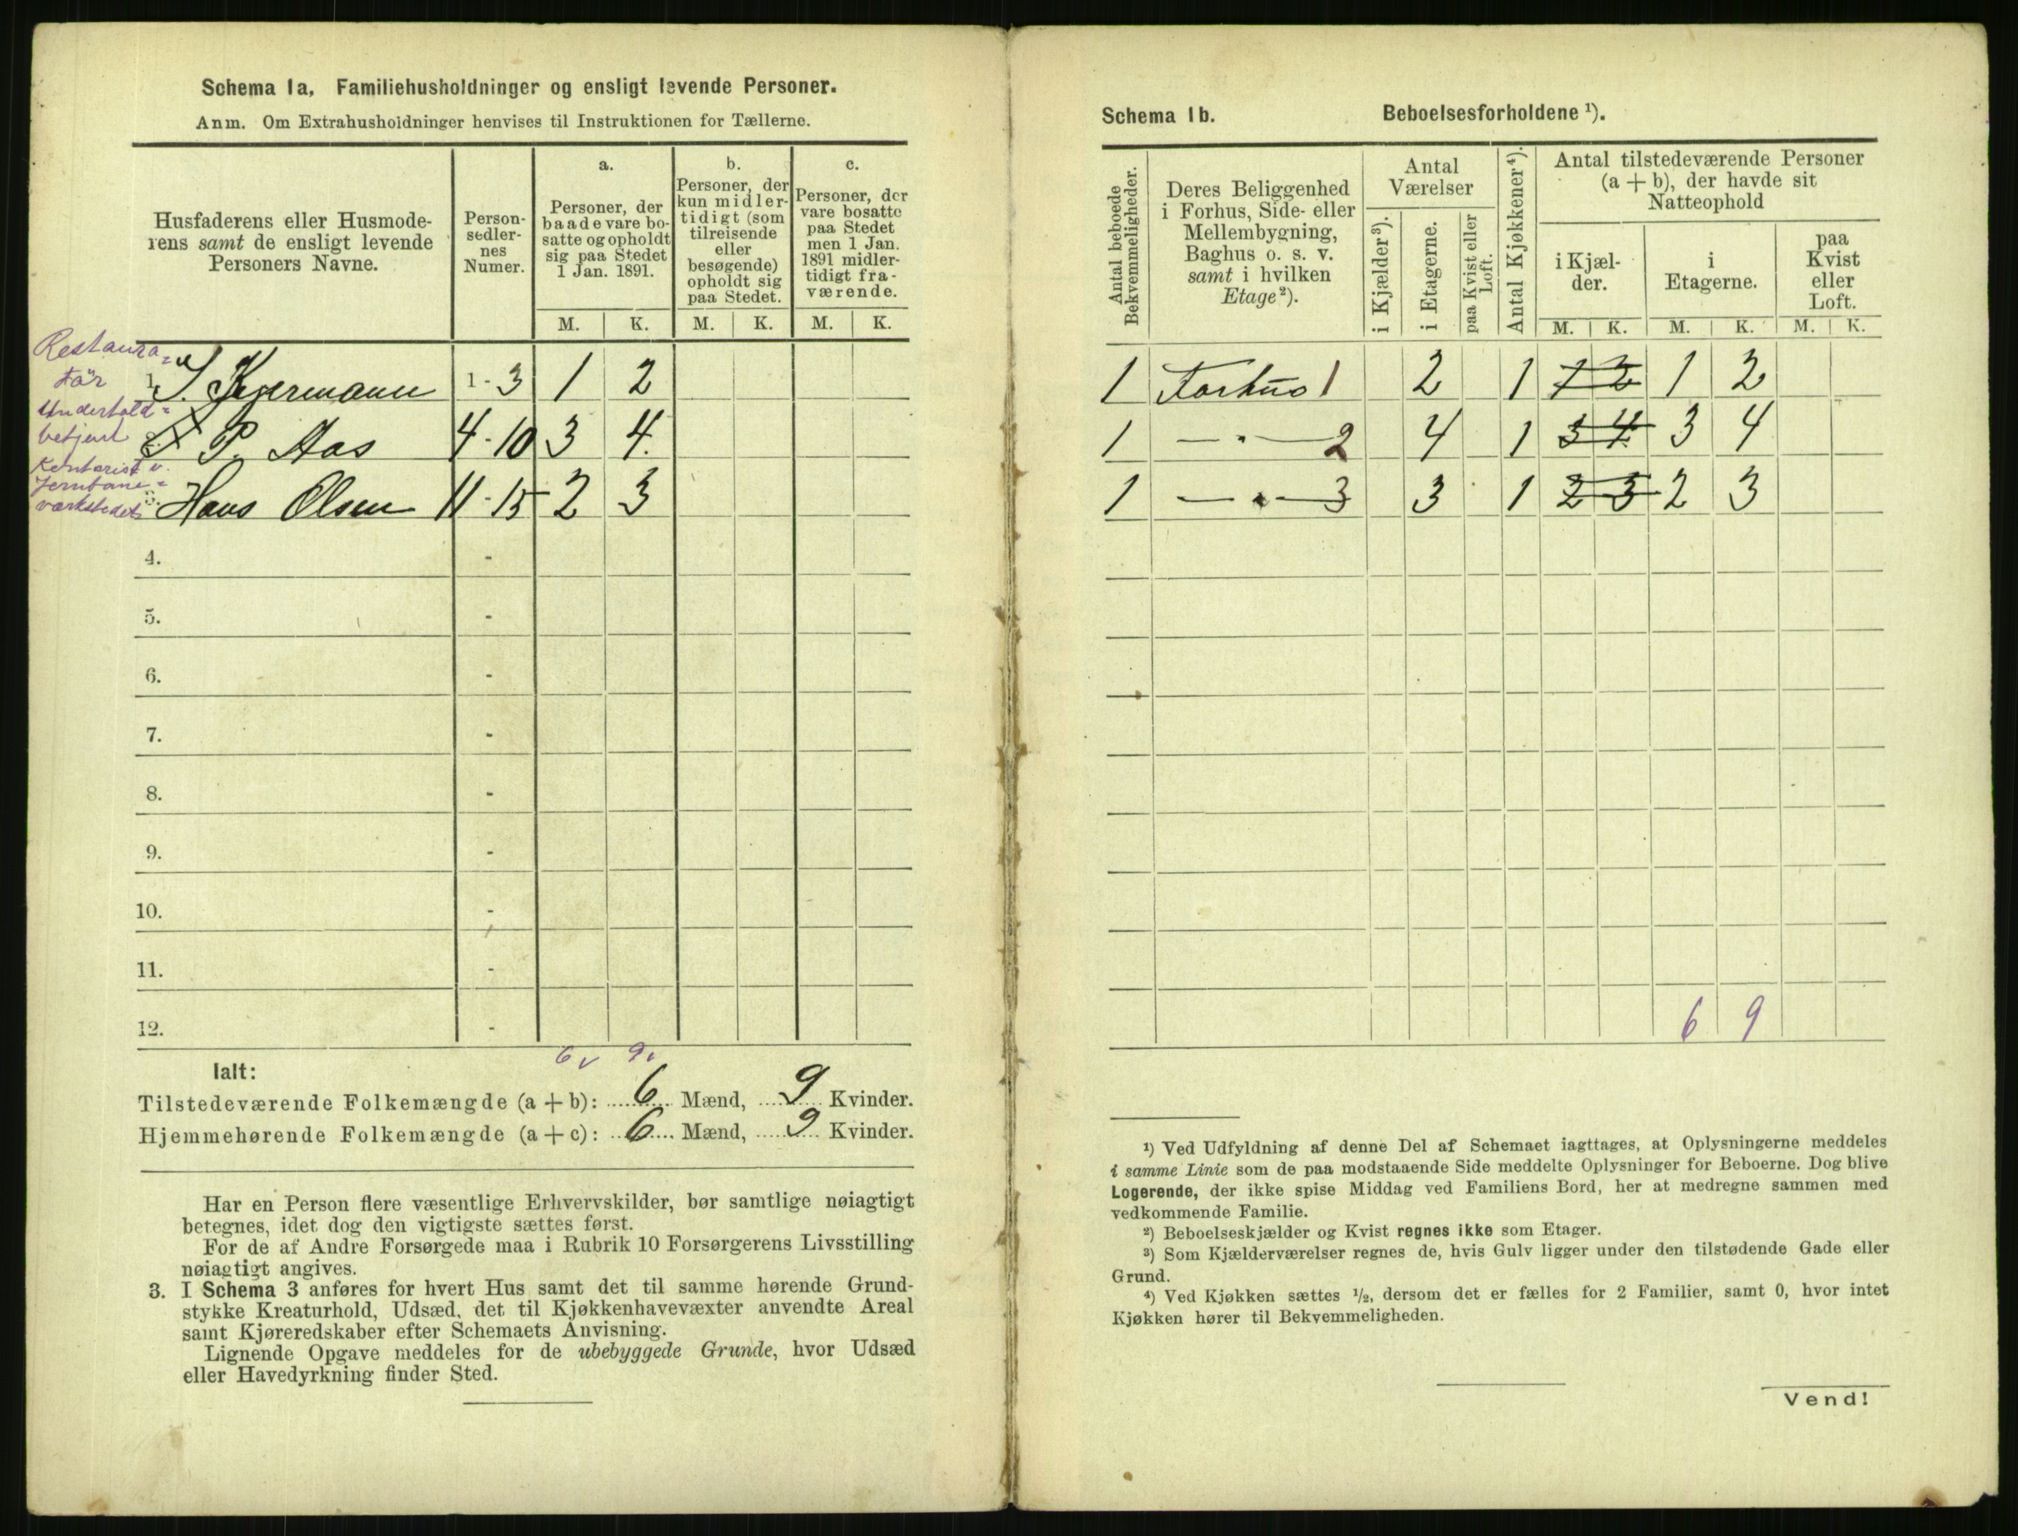 Schema 1a. Familiehusholdninger og ensligt levende Personer.
Anm. Om Extrahusholdninger henvises til Instruktionen for Tællerne.
Husfaderens eller Husmode-
rens samt de ensligt levende
Personers Navne.
Person-
sedler-
nes
Numer.
a.
Personer, der
baade vare bo-
satte og opholdt
sig paa Stedet
1 Jan. 1891.
b.
Personer, der
kun midler-
tidigt (som
tilreisende
eller
besøgende)
opholdt sig
paa Stedet.
c.
Personer, der
vare bosatte
paa Stedet
men 1 Jan.
1891 midler-
tidigt fra-
værende.
M. K. M. K. M. K.
Restaura-
tør
1. 1 - 3 1 2
Underhold-
betjent
P. Aas 4 - 10 3 4
Kontorist v.
Jernbane-
værkstedet
3. Hans Olsen 11 - 15 2 3
4. -
5. -
6. -
7. -
8. -
9. -
10. -
11. -
12. -
6 v 9 v
Ialt:
Tilstedeværende Folkemængde (a + b): 6 Mænd, 9 Kvinder.
Hjemmehørende Folkemængde (a + c): 6 Mænd, 9 Kvinder.
Har en Person flere væsentlige Erhvervskilder, bør samtlige nøiagtigt
betegnes, idet dog den vigtigste sættes først.
For de af Andre Forsørgede maa i Rubrik 10 Forsørgerens Livsstilling
nøiagtigt angives.
3. I Schema 3 anføres for hvert Hus samt det til samme hørende Grund-
stykke Kreaturhold, Udsæd, det til Kjøkkenhavevæxter anvendte Areal
samt Kjøreredskaber efter Schemaets Anvisning.
Lignende Opgave meddeles for de ubebyggede Grunde, hvor Udsæd
eller Havedyrkning finder Sted.
Schema 1b. Beboelsesforholdene ¹).
Antal beboede
Bekvemmeligheder.
Deres Beliggenhed
i Forhus, Side- eller
Mellembygning,
Baghus o. s. v.
samt i hvilken
Etage ²).
Antal
Værelser
i Kjælder ³).
i Etagerne.
paa Kvist eller
Loft.
Antal Kjøkkener ⁴).
Antal tilstedeværende Personer
(a + b), der havde sit
Natteophold
i Kjæl-
der.
i
Etagerne.
paa
Kvist
eller
Loft.
M. K. M. K. M. K.
1 Forhus 1 2 1 1 2 1 2
1 — " — 2 4 1 3 4 3 4
1 — " — 3 3 1 2 3 2 3
6 9
¹) Ved Udfyldning af denne Del af Schemaet iagttages, at Oplysningerne meddeles
i samme Linie som de paa modstaaende Side meddelte Oplysninger for Beboerne. Dog blive
Logerende, der ikke spise Middag ved Familiens Bord, her at medregne sammen med
vedkommende Familie.
²) Beboelseskjælder og Kvist regnes ikke som Etager.
³) Som Kjælderværelser regnes de, hvis Gulv ligger under den tilstødende Gade eller
Grund.
⁴) Ved Kjøkken sættes ½, dersom det er fælles for 2 Familier, samt 0, hvor intet
Kjøkken hører til Bekvemmeligheden.
Vend!